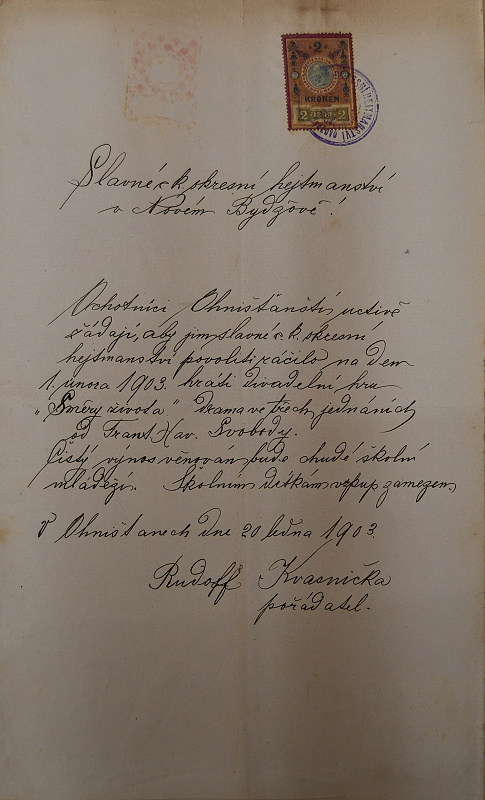 2
KRONEN
2 2
Slavné c. k. okresní hejtmanství
v Novém Bydžově!
Ochotníci Ohnišťanští uctivě
žádají, aby jim slavné c. k. okresní
hejtmanství povoliti ráčilo na den
1. února 1903. hráti divadelní hru
„Směry života" drama ve třech jednáních
od Frant. Xav. Svobody.
Čistý výnos věnován bude chudé školní
mládeži. Školním dítkám vstup zamezen.
V Ohništanech dne 20 ledna 1903.
Rudolf Kvasnička
pořádatel.